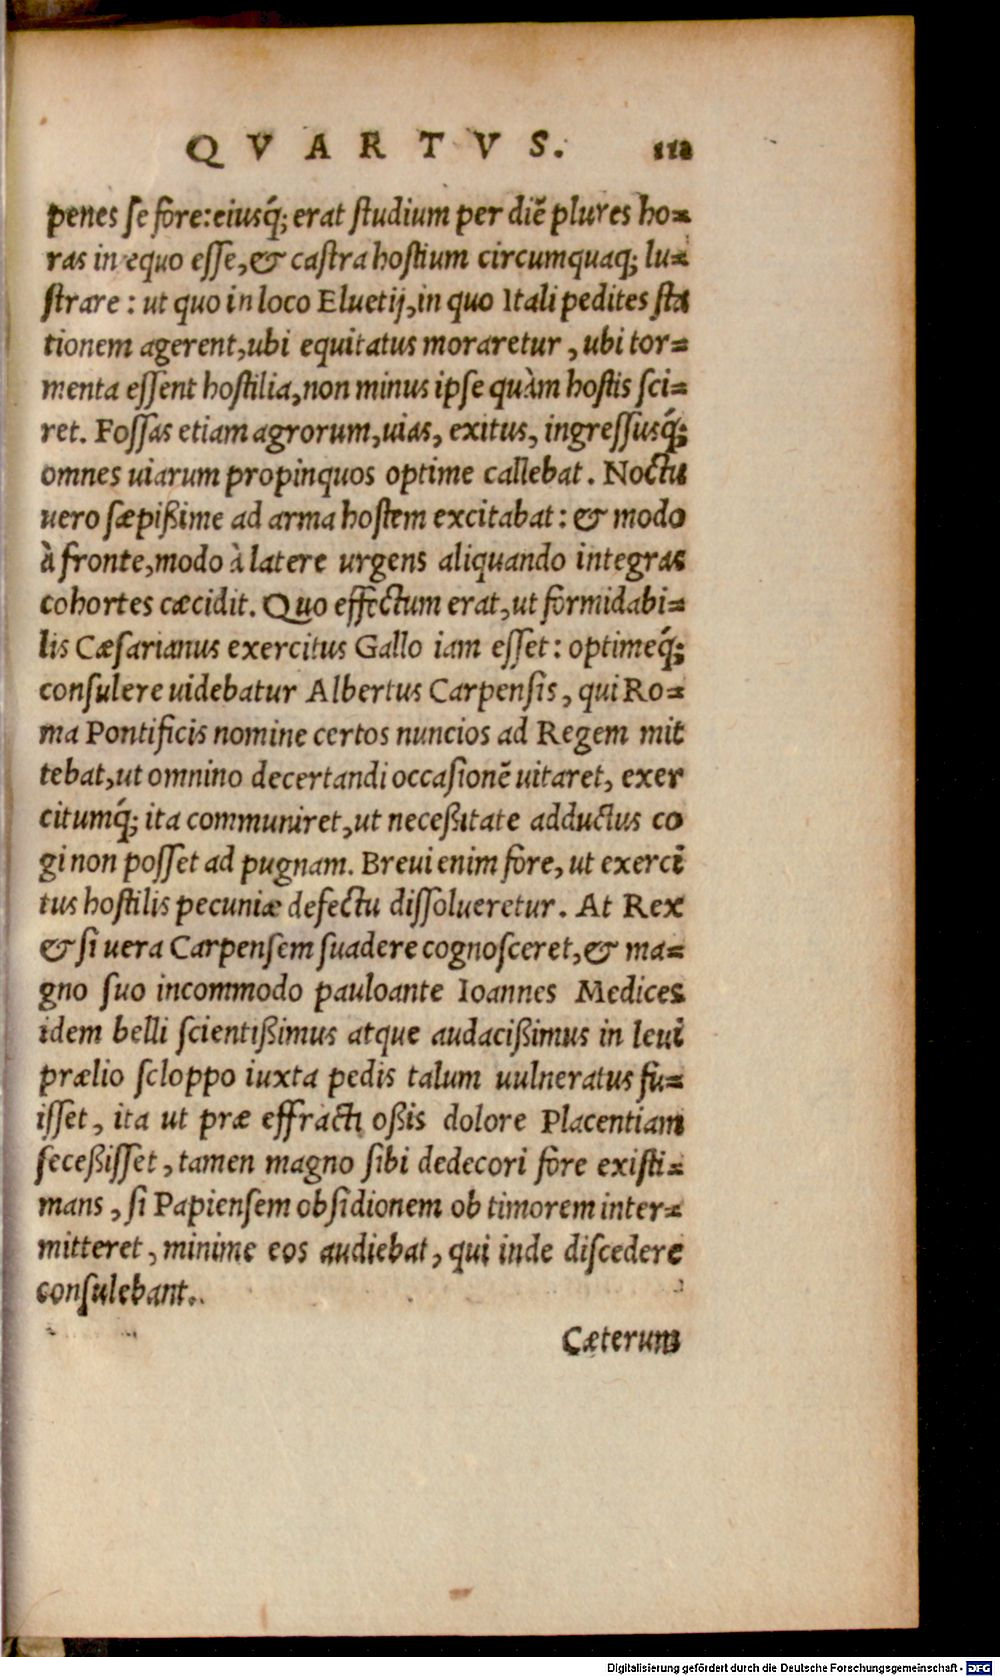 QVARTVS. 112
penes ſe fore: eiusq́; erat ſtudium per diẽ plures ho=
ras in equo eſſe, & caſtra hoſtium circumquaq; lu=
ſtrare: ut quo in loco Eluetij, in quo Itali pedites ſta
tionem agerent, ubi equitatus moraretur, ubi tor=
menta eſſent hoſtilia, non minus ipſe quàm hoſtis ſci=
ret. Foſſas etiam agrorum, uias, exitus, ingreſſusq́;
omnes uiarum propinquos optime callebat. Noctu
uero ſæpißime ad arma hoſtem excitabat: & modo
à fronte, modo à latere urgens aliquando integras
cohortes cæcidit. Quo effectum erat, ut formidabi=
lis Cæſarianus exercitus Gallo iam eſſet: optimeq́;
conſulere uidebatur Albertus Carpenſis, qui Ro=
ma Pontificis nomine certos nuncios ad Regem mit
tebat, ut omnino decertandi occaſionẽ uitaret, exer
citumq́; ita communiret, ut neceßitate adductus co
gi non poſſet ad pugnam. Breui enim fore, ut exerci
tus hoſtilis pecuniæ defectu diſſolueretur. At Rex
& ſi uera Carpenſem ſuadere cognoſceret, & ma=
gno ſuo incommodo pauloante Ioannes Medices
idem belli ſcientißimus atque audacißimus in leui
prælio ſcloppo iuxta pedis talum uulneratus fu=
iſſet, ita ut præ effracti oßis dolore Placentiam
ſeceßiſſet, tamen magno ſibi dedecori fore exiſti=
mans, ſi Papienſem obſidionem ob timorem inter=
mitteret, minime eos audiebat, qui inde diſcedere
conſulebant.
Cæterum
Digitalisierung gefördert durch die Deutsche Forschungsgemeinschaft - DFG